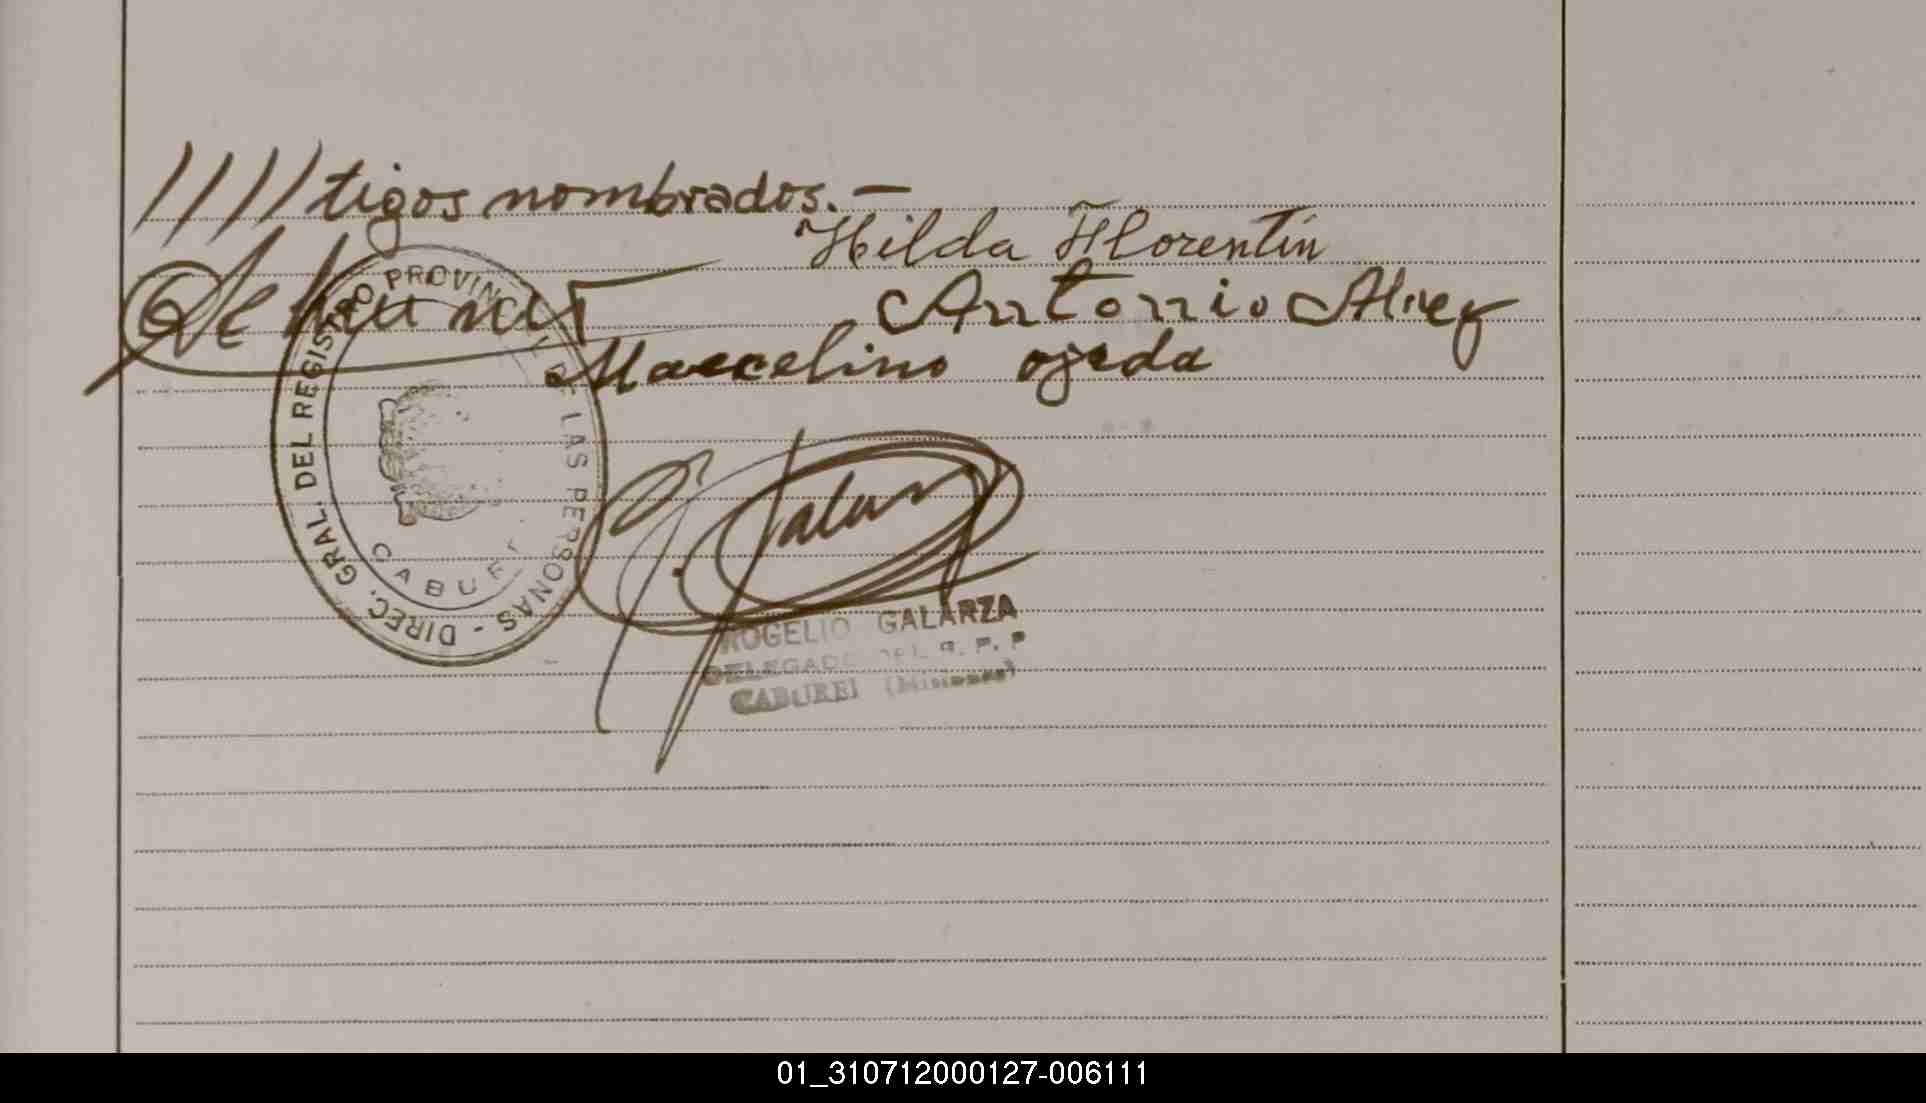 ////tigos nombrados.—
Hilda Florentín
Antonio Alvez
Marcelino ojeda
DIREC. GRAL. DEL REGISTRO PROVINCIAL DE LAS PERSONAS -
CABUREI
ROGELIO GALARZA
DELEGADO DEL R. P. P
CABUREI (Misiones)
01_310712000127-006111